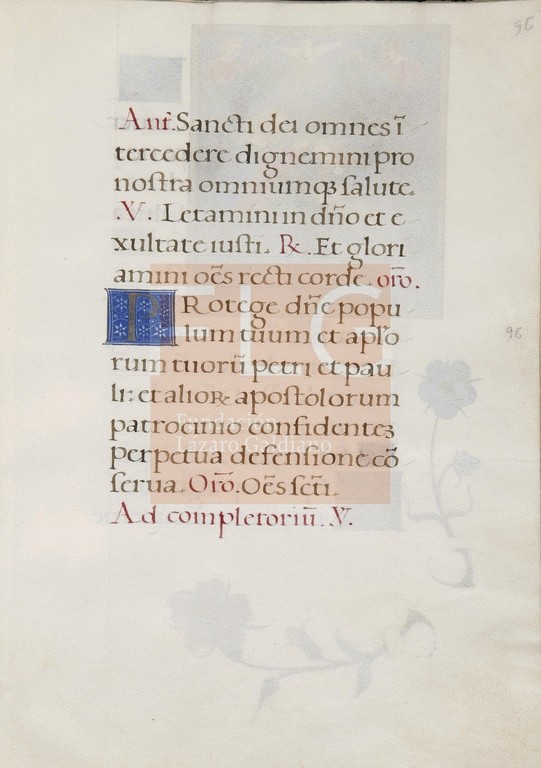 96
Anŕ. Sancti dei omnes ī
tercedere dignemini pro
nostra omniumqꝫ salute.
.V. Letamini in dño et e
xultate iusti. ℞. Et glori
amini oēs recti corde. orō.
PRotege dñe popu
lum tuum et aplō
rum tuorū petri et pau
li: et alioꝝ apostolorum
patrocinio confidentes
perpetua defensione cō
serua. Orō. Oēs scti.
Ad completoriū. V.
96
FLG
Fundación
Lázaro Galdiano